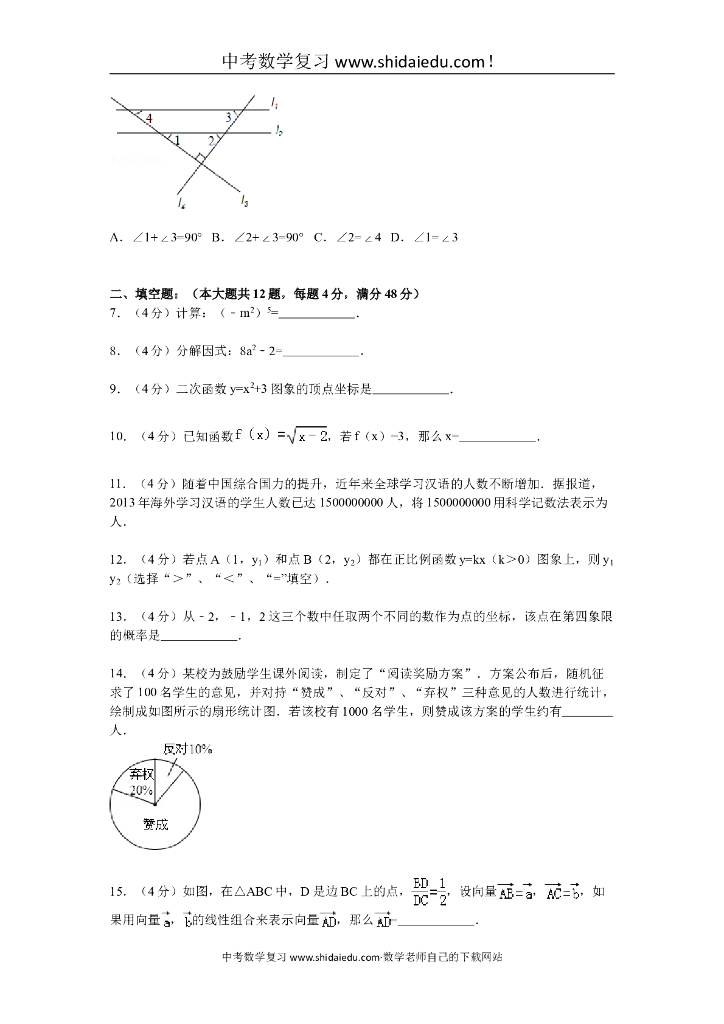 中考数学复习 www.shidaiedu.com！
l₁
4
3
l₂
1
2
l₄
l₃
A．∠1+∠3=90° B．∠2+∠3=90° C．∠2=∠4 D．∠1=∠3
二、填空题：（本大题共12题，每题4分，满分48分）
7．（4分）计算：（﹣m²）⁵=____________．
8．（4分）分解因式：8a²﹣2=____________．
9．（4分）二次函数y=x²+3图象的顶点坐标是____________．
10．（4分）已知函数f（x）=√x－2，若f（x）=3，那么x=____________．
11．（4分）随着中国综合国力的提升，近年来全球学习汉语的人数不断增加．据报道，
2013年海外学习汉语的学生人数已达1500000000人，将1500000000用科学记数法表示为
人．
12．（4分）若点A（1，y₁）和点B（2，y₂）都在正比例函数y=kx（k＞0）图象上，则y₁
y₂（选择“＞”、“＜”、“=”填空）．
13．（4分）从﹣2，﹣1，2这三个数中任取两个不同的数作为点的坐标，该点在第四象限
的概率是____________．
14．（4分）某校为鼓励学生课外阅读，制定了“阅读奖励方案”．方案公布后，随机征
求了100名学生的意见，并对持“赞成”、“反对”、“弃权”三种意见的人数进行统计，
绘制成如图所示的扇形统计图．若该校有1000名学生，则赞成该方案的学生约有________
人．
反对10%
弃权
20%
赞成
15．（4分）如图，在△ABC中，D是边BC上的点，BD/DC=1/2，设向量AB=a，AC=b，如
果用向量a，b的线性组合来表示向量AD，那么AD=____________．
中考数学复习 www.shidaiedu.com·数学老师自己的下载网站